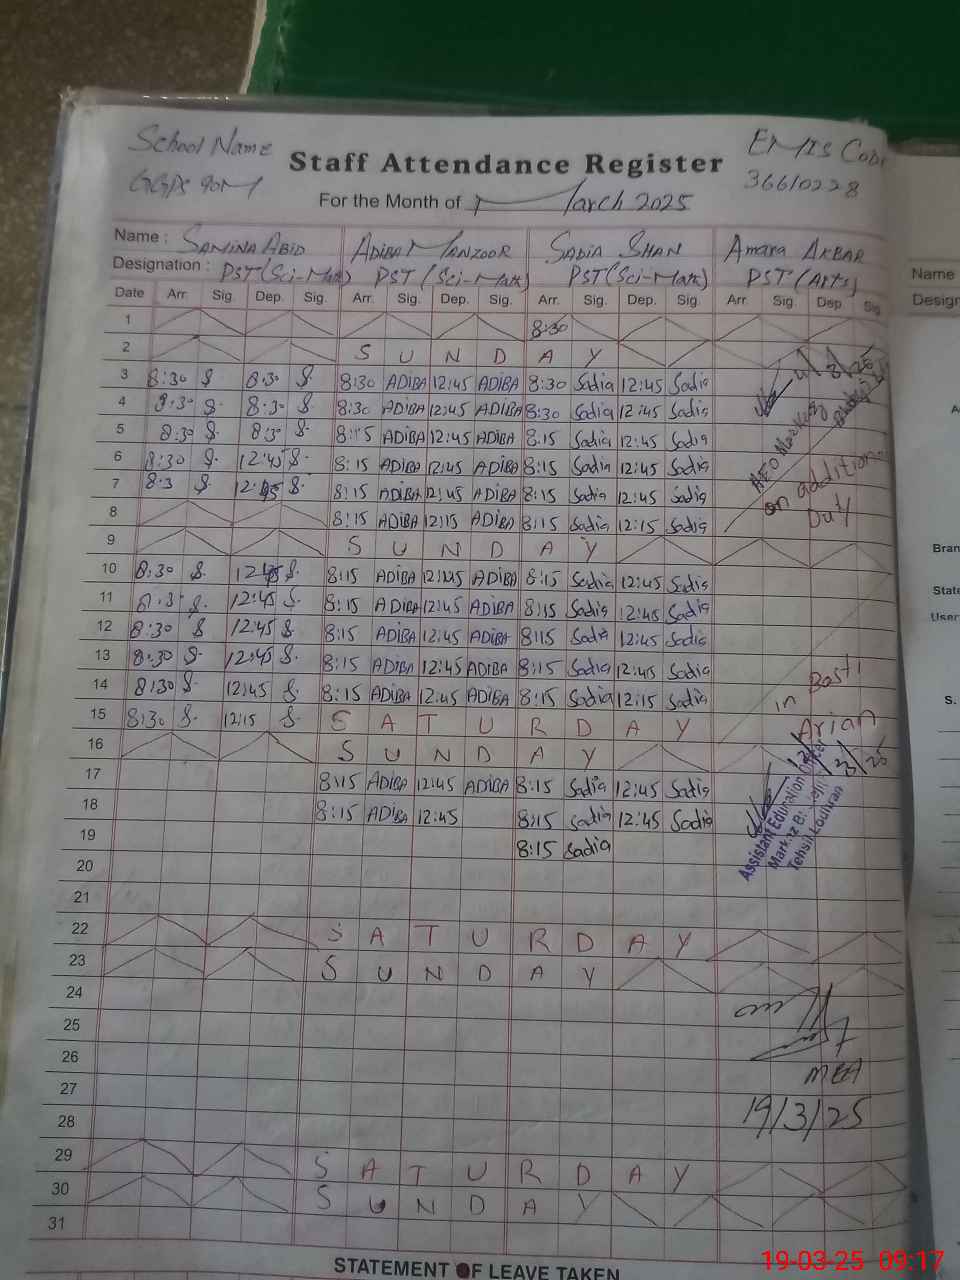 School Name
EMIS Code
Staff Attendance Register
GGPS 90M
36610228
For the Month of March 2025
Name : SAMINA ABID ADIBA MANZOOR SADIA SHAN Amara AKBAR
Name
Designation : PST(Sci-Math) PST (Sci-Math) PST(Sci-Math) PST (Arts)
Design
Date Arr. Sig. Dep. Sig. Arr. Sig. Dep. Sig. Arr. Sig. Dep. Sig. Arr. Sig. Dep. Sig.
1 8:30
2 S U N D A Y
3 8:30 S. 8:30 S. 8:30 ADIBA 12:45 ADIBA 8:30 Sadia 12:45 Sadia
4 8:30 S. 8:30 S. 8:30 ADIBA 12:45 ADIBA 8:30 Sadia 12:45 Sadia
5 8:30 S. 8:30 S. 8:15 ADIBA 12:45 ADIBA 8:15 Sadia 12:45 Sadia
6 8:30 S. 12:45 S. 8:15 ADIBA 12:45 ADIBA 8:15 Sadia 12:45 Sadia
7 8:3 S. 12:45 S. 8:15 ADIBA 12:45 ADIBA 8:15 Sadia 12:45 Sadia
on addition
Duty
8 8:15 ADIBA 12:15 ADIBA 8:15 Sadia 12:15 Sadia
9 S U N D A Y
Bran
10 8:30 S. 12:45 S. 8:15 ADIBA 12:45 ADIBA 8:15 Sadia 12:45 Sadia
State
11 8:3 S. 12:45 S. 8:15 ADIBA 12:45 ADIBA 8:15 Sadia 12:45 Sadia
User
12 8:30 S 12:45 S. 8:15 ADIBA 12:45 ADIBA 8:15 Sadia 12:45 Sadia
13 8:30 S. 12:45 S. 8:15 ADIBA 12:45 ADIBA 8:15 Sadia 12:45 Sadia
Basti
14 8:30 S. 12:45 S. 8:15 ADIBA 12:45 ADIBA 8:15 Sadia 12:15 Sadia
in
S.
15 8:30 S. 12:15 S. S A T U R D A Y
Arian
16 S U N D A Y
17 8:15 ADIBA 12:45 ADIBA 8:15 Sadia 12:45 Sadia
18 8:15 ADIBA 12:45 8:15 Sadia 12:45 Sadia
Assistant Education Officer
Tehsil Lodhran
19 8:15 Sadia
20
21
22 S A T U R D A Y
23 S U N D A Y
24
25
26
MEA
27
19/3/25
28
29 S A T U R D A Y
30 S U N D A Y
31
STATEMENT OF LEAVE TAKEN
19-03-25 09:17